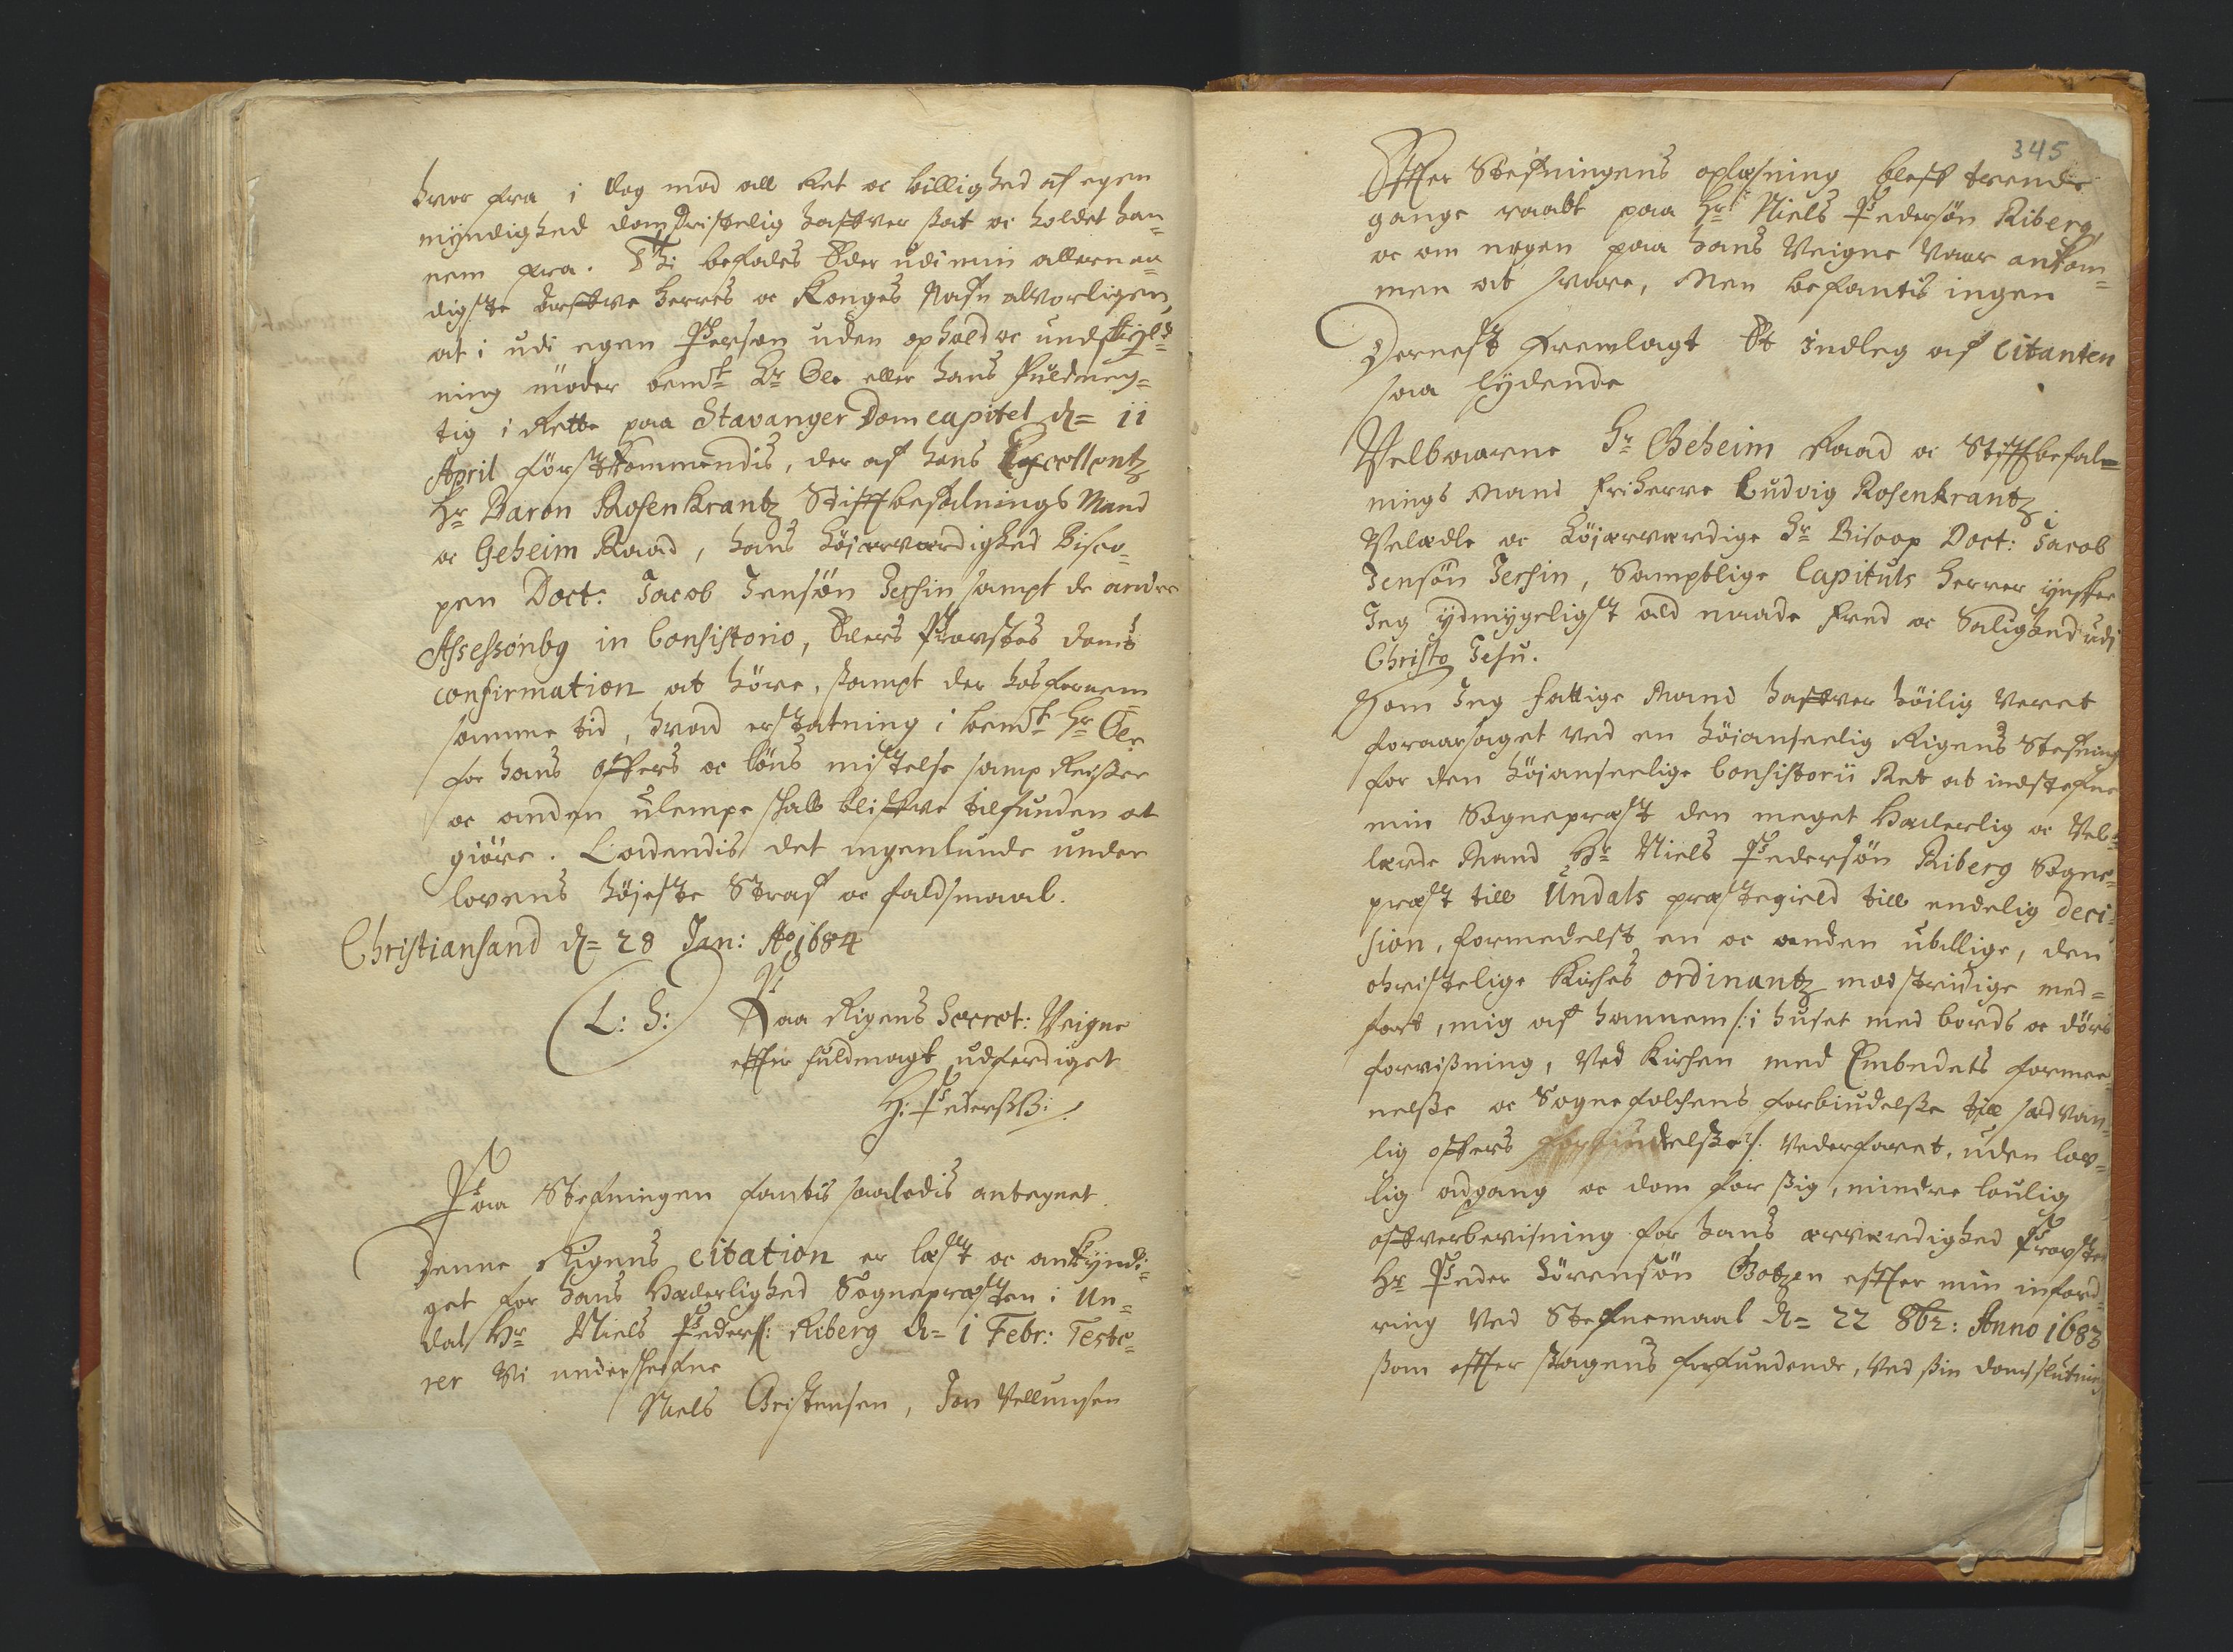 hvor fra i dog mod all Ret oc billighed af egen
myndighed dom Dristelig haffver sat oc holdet han¬
nem fra. Thi befales Eder udi min allernaa¬
digste Arffve Herres oc Konges Nafn alvorligen,
at i udi egen Person uden ophold oc undskyld¬
ning møder bemlt Hr Ole eller hans Fuldmeg¬
tig i Rette paa Stavanger Domcapitel d= 11
April førstkommendis, der af hans Excellentz
Hr Baron Rosenkrantz Stiftbefalnings Mand
oc Geheim Raad, hans Højærværdighed Bisco¬
pen Doct: Jacob Jensøn Jersin sampt de andre
Assessoribg in Consistorio, Eders Provstes doms
confirmation at høre, sampt der hos fornem
samme tid, hvad erstatning i bemlt Hr Ole
for hans offers oc løns mistelse samp Reiser
oc anden ulempe skall bliffve tilfunden at
giøre. Ladendis det ingenlunde under
lovens høieste Straf oc faldsmaal.
Christiansand d= 28 Jan: Ao 1684
(L: S:) Paa Rigens Secret: Veigne
effter fuldmagt udferdiget
H: Pederss:
Paa Stefningen fantis saaledis antegnet.
Denne Rigens citation er læst oc ankyndi¬
get for hans Hæderlighed Sognepræsten i Un¬
dal Hr Niels Peders: Riberg d= 1 Febr: Teste¬
rer Vi underskrefne
Niels Christensen, Jon Vellumsen
345
Effter Stefningens oplæsning bleff trende
gange raabt paa Hr: Niels Pedersøn Riberg,
oc om nogen paa hans Veigne Vaar ankom¬
men at svare, Men befantis ingen
Dernest fremlagt Et Indleg af Citanten
saa lydende
Velbaarne Hr Geheim Raad oc Stifftbefal¬
nings Mand friherre Ludvig Rosenkrantz
Velædle oc Højærværdige Hr Biscop Doct: Jacob
Jensøn Jersin, Samptlige Capituls Herrer ynsker
Jeg ydmygeligst all naade fred oc Salighed udi
Christo Jesu.
Som Jeg fattige Mand haffver høilig Veret
foraarsaget ved en høianseelig Rigens Stefning
for den højanseelige Consistorii Ret at indstefne
min Sognepræst den meget Hæderlig oc Vel¬
lærde Mand Hr Niels Pedersøn Riberg Sogne¬
præst till Undals præstegield till endelig deci¬
sion, formedelst en oc anden ubillige, den
christelige Kirkes ordinantz modstridige med¬
fart, mig af hannem /: i huset med bords oc dørs
forvisning, Ved Kirken med Embedets formee¬
nelse oc Sognefolchens forbiudelse till sædvan¬
lig offers forbiudelse :/ Vederfaret, uden lov¬
lig adgang oc dom for sig, mindre loulig
offverbevisning for hans ærværdighed Provsten
Hr Peder Sørensøn Godtzen effter min inford¬
ring Ved Stefnemaal d= 22 8br: Anno 1683
som effter sagens forfundende, Ved sin doms slutning